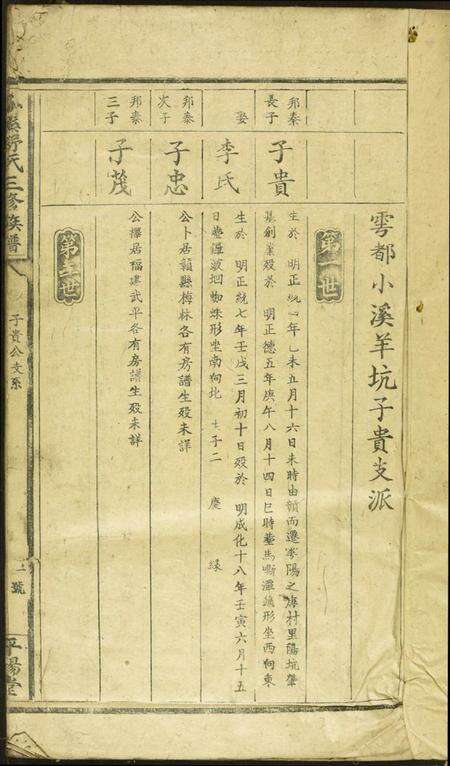 雩都小溪羊坑子貴支派
第二世
邦泰長子
子貴
生於 明正統 年 未五月十六日未時由贛而遷寧陽之 村里陽坑肇
基創業殁於 明正德五年庚午八月十四日巳時塟馬嘶潭 形坐西向東
娶
李氏
生於 明正統七年壬戌三月初十日殁於 明成化十八年壬寅六月十五
日塟 洄蜘蛛形坐南向北 生子二 慶 緣
邦泰次子
子忠
公卜居贛縣梅林各有房譜生殁未詳
邦泰三子
子茂
公擇居福建武平各有房譜生殁未詳
第三世
氏三修族譜
子貴公支系
號
平陽堂